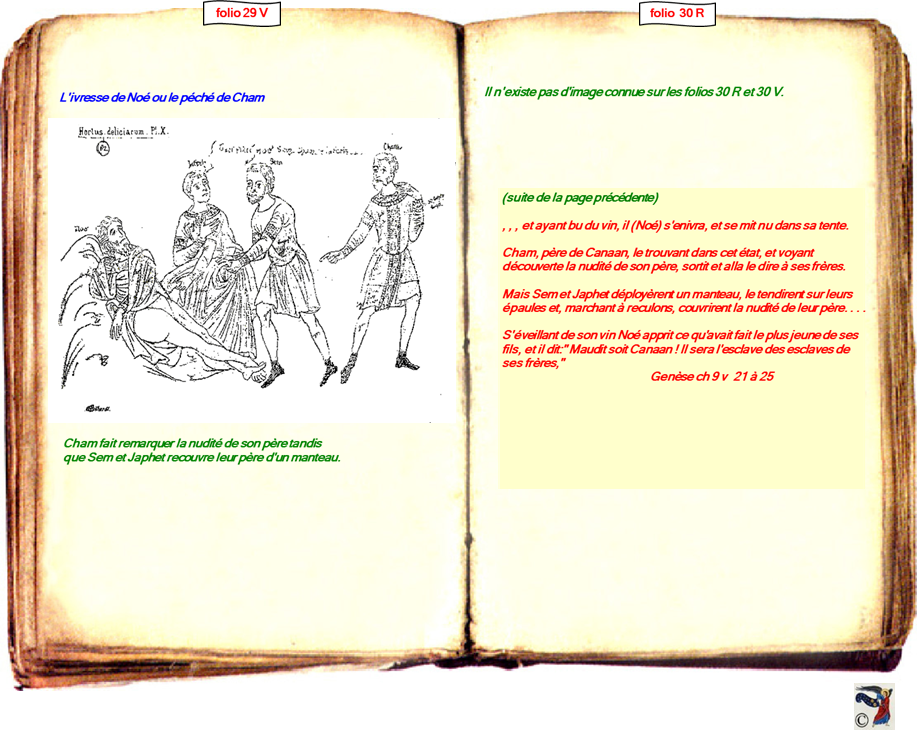 folio 29 V
L'ivresse de Noé ou le péché de Cham
Hortus deliciarum. Pl. X.
Japhet
Sem
Cham
Noe
Cham fait remarquer la nudité de son père tandis
que Sem et Japhet recouvre leur père d'un manteau.
folio 30 R
Il n'existe pas d'image connue sur les folios 30 R et 30 V.
(suite de la page précédente)
, , , et ayant bu du vin, il (Noé) s'enivra, et se mit nu dans sa tente.
Cham, père de Canaan, le trouvant dans cet état, et voyant
découverte la nudité de son père, sortit et alla le dire à ses frères.
Mais Sem et Japhet déployèrent un manteau, le tendirent sur leurs
épaules et, marchant à reculons, couvrirent la nudité de leur père. . . .
S'éveillant de son vin Noé apprit ce qu'avait fait le plus jeune de ses
fils, et il dit:" Maudit soit Canaan ! Il sera l'esclave des esclaves de
ses frères,"
Genèse ch 9 v 21 à 25
©